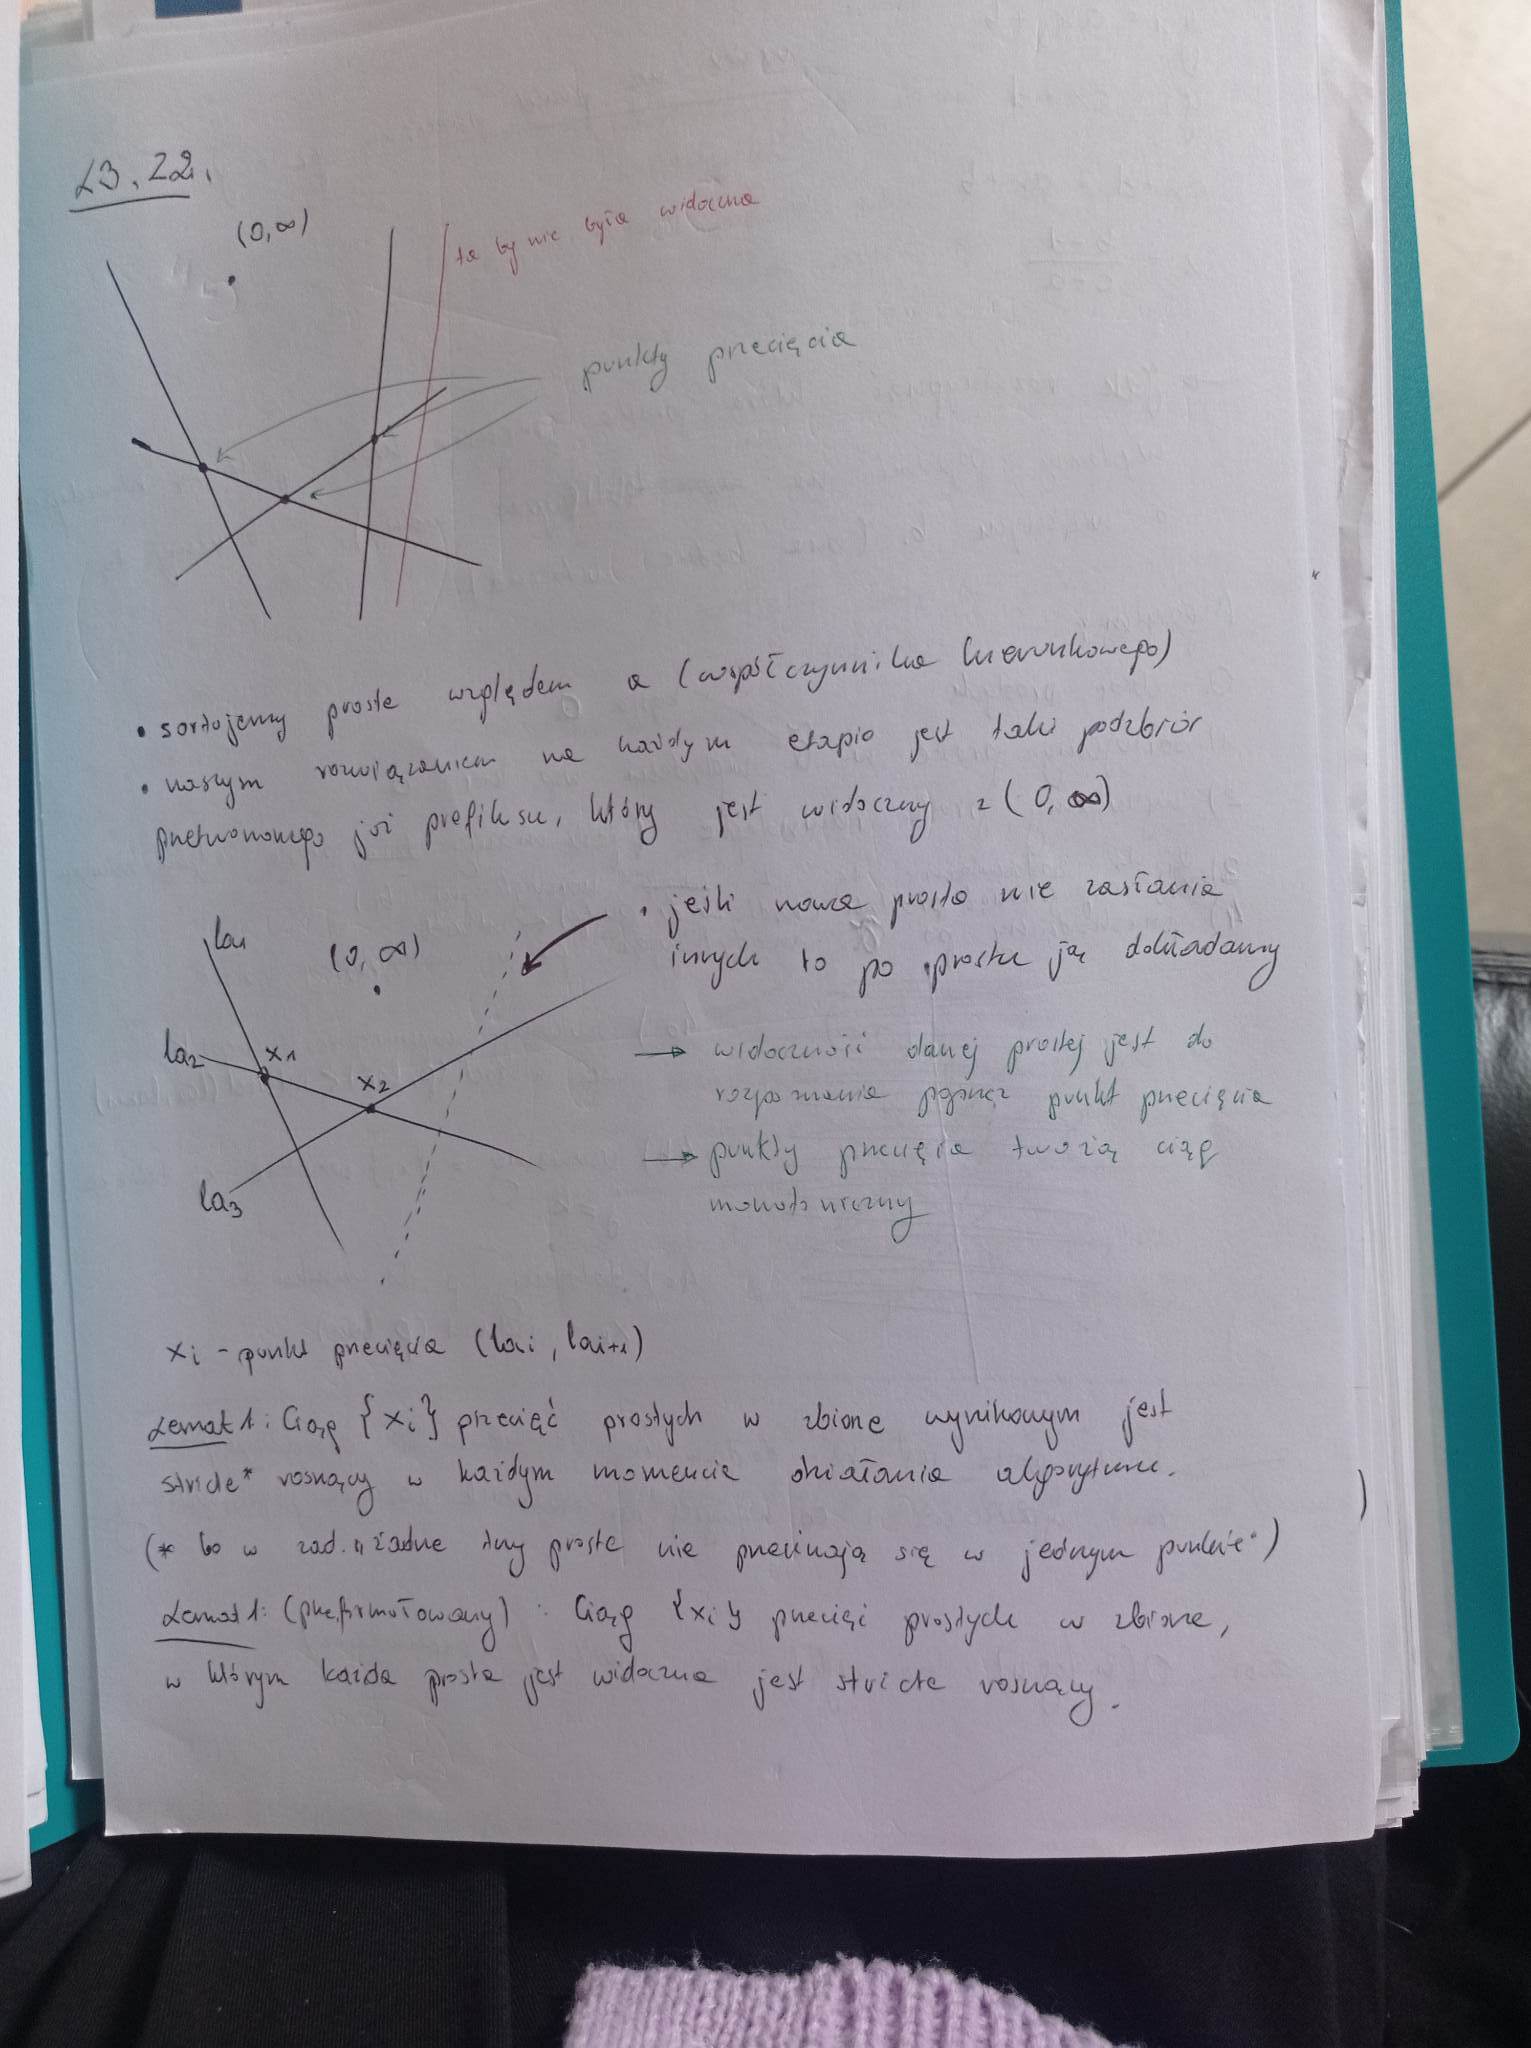 L3. Z2.
(0,∞)
ta by nie była widoczna
punkty przecięcia
• sortujemy proste względem a (współczynnika kierunkowego)
• naszym rozwiązaniem na każdym etapie jest taki podzbiór
przetworzonego już prefiksu, który jest widoczny z (0, ∞)
la1
(0, ∞)
• jeśli nowa prosta nie zasłania
innych to po prostu ją dokładamy
la2
x1
x2
→ widoczność danej prostej jest do
rozpoznania poprzez punkt przecięcia
→ punkty przecięcia tworzą ciąg
monotoniczny
la3
xi - punkt przecięcia (lai, lai+1)
Lemat 1: Ciąg {xi} przecięć prostych w zbiorze wynikowym jest
stricte* rosnący w każdym momencie działania algorytmu.
(* bo w zad. "żadne trzy proste nie przecinają się w jednym punkcie")
Lemat 1: (przeformułowany) : Ciąg {xi} przecięć prostych w zbiorze,
w którym każda prosta jest widoczna jest stricte rosnący.